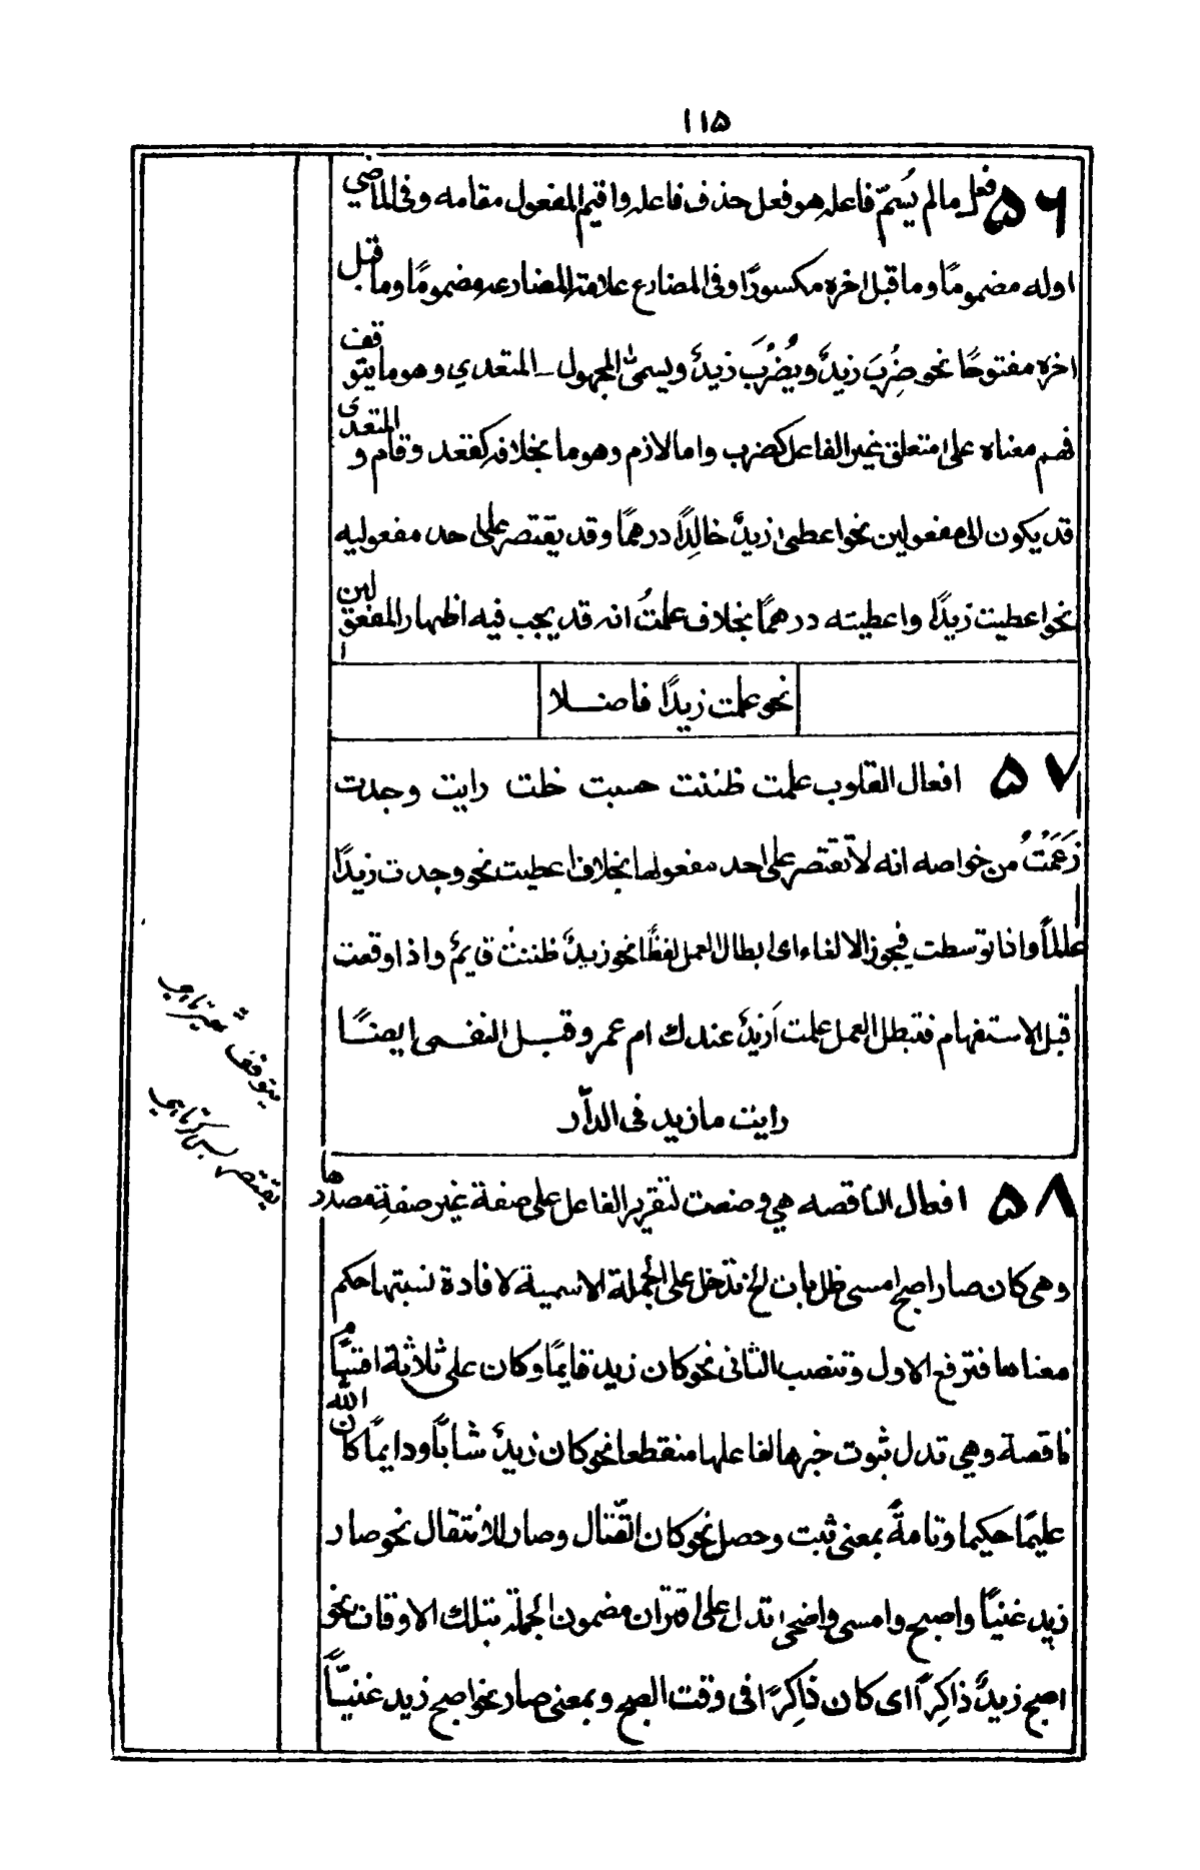 ۱۱۵
۵۶ فعل مالم يُسَمّ فاعله هو فعل حذف فاعله واقيم المفعول مقامه وفى الماضي
اوله مضمومًا وما قبل اخره مكسورًا وفى المضارع علامة المضارعه مضمومًا وما قبل
اخره مفتوحًا نحو ضُرِبَ زيدٌ ويُضْرَبُ زيدٌ ويسمىٰ المجهول ــ المتعدي وهو ما يتوقف
فهم معناه على متعلق غير الفاعل كضرب واما لازم وهو ما بخلافه كقعد وقام و المتعدى
قد يكون الى مفعولين نحو اعطىٰ زيدٌ خالِدًا درهمًا وقد يقتصر على احد مفعوليه
نحو اعطيت زيدًا واعطيته درهمًا بخلاف علمتُ انه قد يجب فيه اظهار المفعولين
نحو علمت زيدًا فاضلا
۵۷ افعال القلوب علمت ظننت حسبت خلت رايت وجدت
زَعَمْتُ من خواصه انه لا تقتصر على احد مفعولها بخلاف اعطيت نحو وجدت زيدًا
ظالمًا واذا توسطت فيجوز الالغاء اى ابطال العمل لفظًا نحو زيدٌ ظننتُ قايمٌ واذا وقعت
قبل الاستفهام فتبطل العمل علمت اَزيدٌ عندك ام عمر وقبل النفى ايضًا
رايت ما زيد فى الدّار
۵۸ افعال الناقصه هي وضعت لتقرير الفاعل على صفة غير صفةِ مصدرها
وهى كان صار اصبح امسى ظل بات الخ تدخل على الجملة الاسمية لافادة نسبتها حكم
معناها فترفع الاول وتنصب الثانى نحو كان زيد قايمًا وكان على ثلاثة اقسام
ناقصة وهي تدل ثبوت خبرها لفاعلها منقطعا نحو كان زيدٌ شابًّا ودايمًا كان الله
عليمًا حكيما وتامةً بمعنى ثبت وحصل نحو كان القتال وصار للانتقال نحو صار
زيد غنيًا واصبح وامسى واضحى تدل على اقتران مضمون الجملة بتلك الاوقات نحو
اصبح زيدٌ ذاكِرًا اى كان ذاكِرًا فى وقت الصبح وبمعنى صار نحو اصبح زيد غنيًّا
يتوقف
يقتصر بس كرتا هي